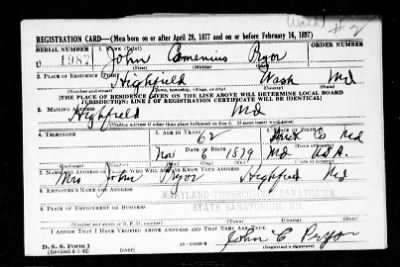 Wash #2
REGISTRATION CARD—(Men born on or after April 28, 1877 and on or before February 16, 1897)
SERIAL NUMBER 1. NAME (Print) ORDER NUMBER
U 1987 John Comenius Pryor
(First) (Middle) (Last)
2. PLACE OF RESIDENCE (Print)
Highfield Wash Md
(Number and street) (Town, township, village, or city) (County) (State)
[THE PLACE OF RESIDENCE GIVEN ON THE LINE ABOVE WILL DETERMINE LOCAL BOARD
JURISDICTION; LINE 2 OF REGISTRATION CERTIFICATE WILL BE IDENTICAL]
3. MAILING ADDRESS
Highfield Md
[Mailing address if other than place indicated on line 2. If same insert word same]
4. TELEPHONE 5. AGE IN YEARS 6. PLACE OF BIRTH
62 Co Md
DATE OF BIRTH
Nov 6 1879 Md U.S.A.
(Exchange) (Number) (Mo.) (Day) (Yr.) (State or country)
7. NAME AND ADDRESS OF PERSON WHO WILL ALWAYS KNOW YOUR ADDRESS
Mrs John Pryor Highfield Md
8. EMPLOYER'S NAME AND ADDRESS
MARYLAND SANATORIUM
STATE SANATORIUM, MD.
9. PLACE OF EMPLOYMENT OR BUSINESS
(Number and street or R. F. D. number) (Town) (County) (State)
I AFFIRM THAT I HAVE VERIFIED ABOVE ANSWERS AND THAT THEY ARE TRUE.
John C Pryor
D. S. S. Form 1
(Revised 4-1-42) (over) (Registrant's signature)